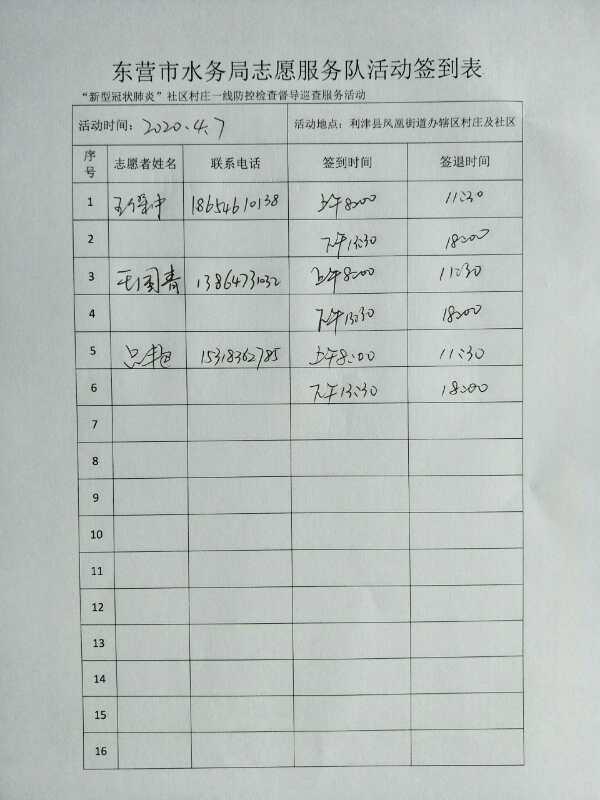 东营市水务局志愿服务队活动签到表
“新型冠状肺炎”社区村庄一线防控检查督导巡查服务活动
活动时间：2020.4.7 活动地点：利津县凤凰街道办辖区村庄及社区
序号 志愿者姓名 联系电话 签到时间 签退时间
1 18654610138 上午8:00 11:30
2 下午13:30 18:00
3 王国青 13864731032 上午8:00 11:30
4 下午13:30 18:00
5 15318362785 上午8:00 11:30
6 下午13:30 18:00
7
8
9
10
11
12
13
14
15
16